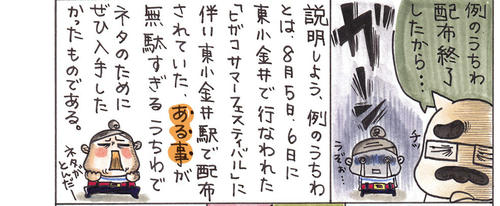 例のうちわ
配布終了
したから…
ガーン
チッ
うっそぉ…
説明しよう、例のうちわ
とは、8月5日、6日に
東小金井で行なわれた
「ヒガコサマーフェスティバル」に
伴い東小金井駅で配布
されていた、ある事が
無駄すぎるうちわで
ネタのために
ぜひ入手した
かったものである。
ネタが
とんだー